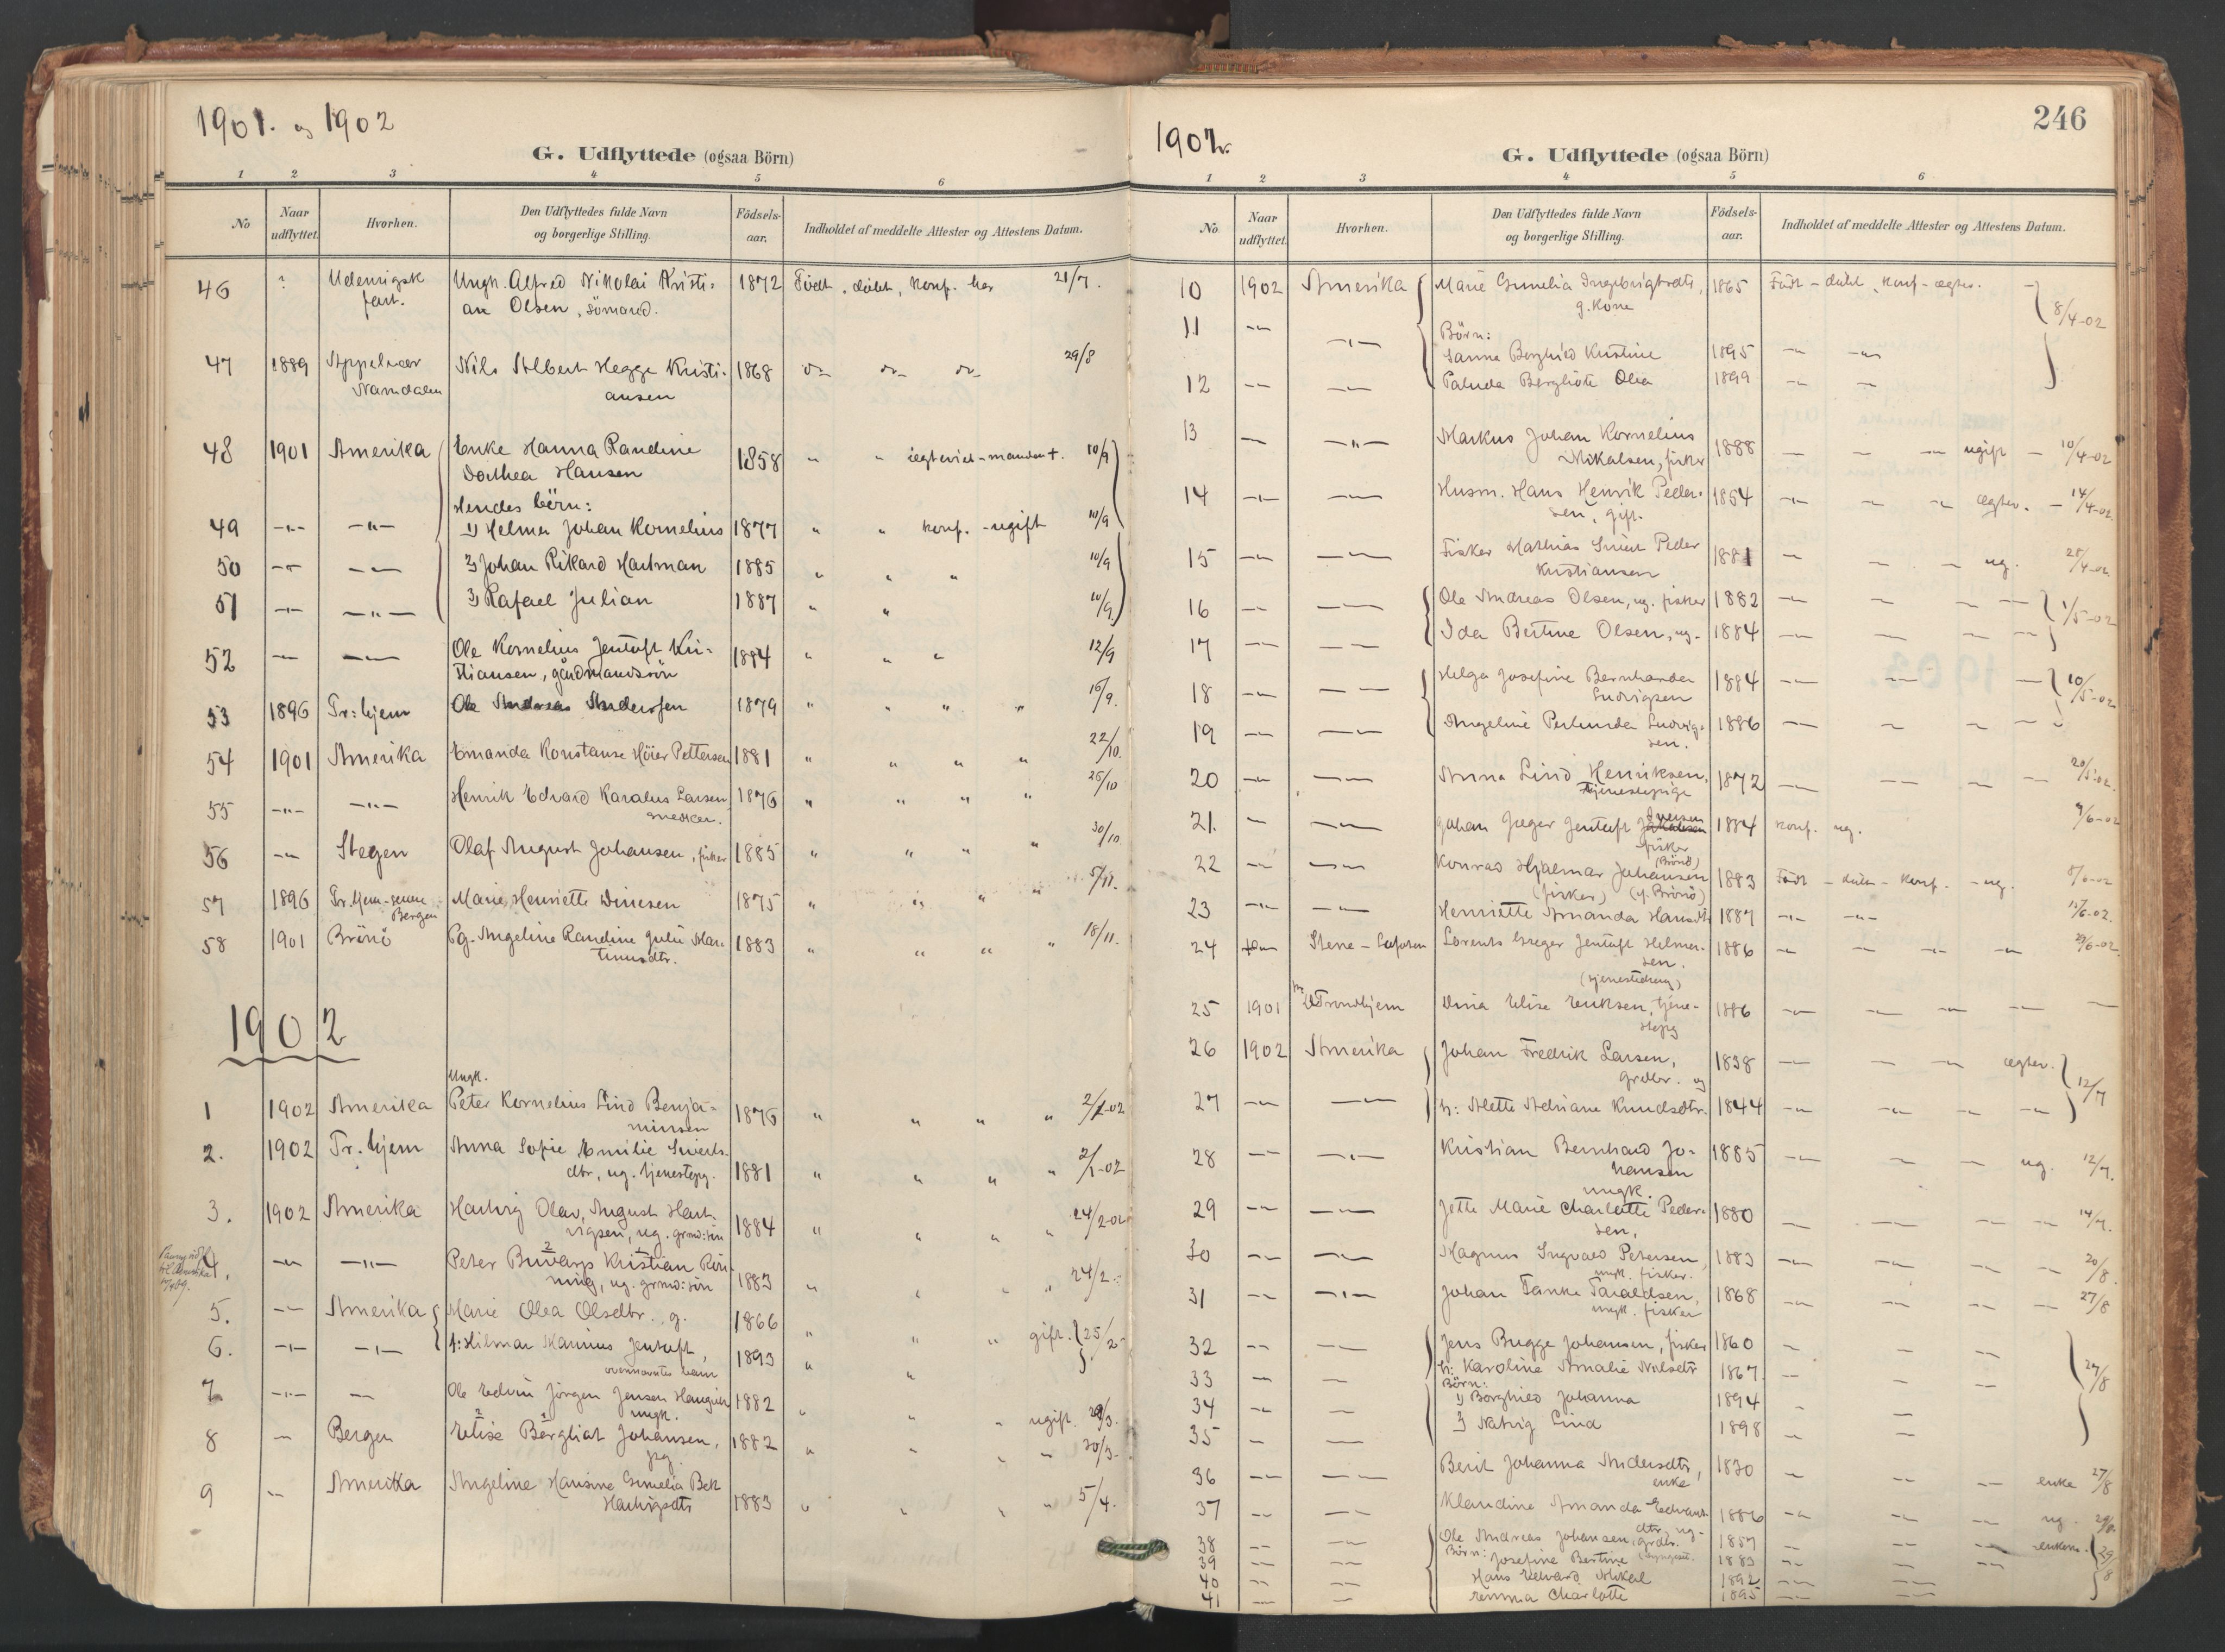 1901. og 1902
G. Udflyttede (ogsaa Börn)
1 2 3 4 5 6
No
Naar udflyttet.
Hvorhen.
Den Udflyttedes fulde Navn og borgerlige Stilling.
Födsels-aar.
Indholdet af meddelte Attester og Attestens Datum.
46 ? Udenrigsk fart. Ungk. Alfred Nikolai Kristi-
an Olsen, sömand. 1872 Födt, döbt, konf. har 21/7.
47 1889 Appelvær Namdalen Nils Albert Hegge Kristi-
ansen 1868 do do do 29/8
48 1901 Amerika Enke Hanna Randine
Dorthea Hansen 1858 " " ægteviet - manden +. 10/9
Hendes börn:
49 -"- -"- 1) Helmer Johan Kornelius 1877 " " konf. - ugift 10/9
50 -"- -"- 2) Johan Rikard Hartman 1885 " " " 10/9
51 -"- -"- 3) Rafael Julian 1887 " " 10/9
52 -"- -"- Ole Kornelius Jentoft Kri-
stiansen, gårdmandssön 1884 " " " 12/9
53 1896 Tr:hjem Ole Andreas Anderssen 1879 " " " " 16/9.
54 1901 Amerika Amanda Konstanse Höier Pettersen 1881 " " " " 22/10.
55 -"- -"- Henrik Edvard Karalus Larsen
snedker. 1876 " " " " 26/10
56 -"- Stegen Olaf August Johansen, fisker 1885 " " " " 30/10.
57 1896 Tr.hjem - senere Bergen Marie Henriette Dinesen 1875 " " " " 5/11.
58 1901 Brönö Pg. Angeline Randine Julie Mar-
tinusdtr. 1883 " " " " 18/11.
1902
Ungk.
1 1902 Amerika Peter Kornelius Lind Benja-
minsen 1876 " " " " 2/1-02
2. 1902 Tr.hjem Anna Sofie Emilie Siverts-
dtr, ug. tjenestepg. 1881 " " " " 2/1-02
3. 1902 Amerika Hartvig Olav August Hart-
vigsen, ug. grmd:sön 1884 " " " " 24/2-02
4. -"- -"- Peter Kristian Rön-
ning, ug. grmd:sön 1883 " " " 24/2.
5. -"- Amerika Marie Olea Olsdtr., g. 1866 " " " gift. 25/2
6. -"- -"- Hilmar Marinus Jentoft,
ovennævntes barn 1893 " "
7 -"- -"- Ole Edvin Jörgen Jensen
ungk. 1882 " " " ugift. 29/3.
8 -"- Bergen Elise Bergliot Johansen,
pg. 1882 " " " " 30/3.
9 -"- Amerika Angeline Hansine Cornelia Bek
Hartvigsdtr 1883 " " " " 5/4.
246
1902.
G. Udflyttede (ogsaa Börn)
1 2 3 4 5 6
No
Naar udflyttet.
Hvorhen.
Den Udflyttedes fulde Navn og borgerlige Stilling.
Födsels-aar.
Indholdet af meddelte Attester og Attestens Datum.
10 1902 Amerika Marie Cornelia Ingebrigtsdtr,
g. Kone 1865 Födt - döbt, konf - ægtev. - 8/4-02
Börn:
11 -"- -"- Sanna Berghied Kristine 1895 -"- -"-
12 -"- -"- Bergliote Olea 1899 -"- -"-
13 -"- -"- Markus Johan Kornelius
Mikalsen, fisker 1888 - - - ugift - 10/4-02
14 -"- -"- Husm. Hans Henrik Peder-
sen, gift. 1854 - - - ægtev. - 14/4-02.
15 -"- -"- Fisker Mathias Peder
Kristiansen 1881 - - - ug. /4-02.
16 -"- -"- Ole Andreas Olsen, ug. fisker 1882 - - - - 1/5-02
17 -"- -"- Ida Bertine Olsen, ug. 1884 - - - -
18 -"- -"- Helga Josefine Bernharda
Ludvigsen 1884 - - - 10/5-02
19 -"- -"- Angeline Ludvig-
sen. 1886 - - - -
20 -"- -"- Anna Lind Henriksen,
tjenestepige 1872 - - - - 20/5-02.
21. - -"- Johan Jentoft Iversen
fisker
(Brönö) 1884 konf. ug. 9/6-02
22 -"- -"- Konrad Hjalmar Johansen
(fisker) (f. Brönö) 1883 Födt - döbt - konf. - ug.
23 -"- -"- Henriette Amanda Hansdtr 1887 -"- -"- /6-02.
24 -"- Stene - Lofoten Lorents Greger Jentoft Helmer-
sen.
(tjenestedreng) 1886 - - - - /6-02.
25 1901 Trondhjem Dina Elise Eriksen, tjene-
stepg 1886 - - - - -
26 1902 Amerika Johan Fredrik Larsen,
grdbr. og 1838 - - - ægtev. 12/7
27 -"- -"- h: Alette Adriane Knudsdtr. 1844 - - - -
28 -"- -"- Kristian Bernhard Jo-
hansen
ungk. 1885 - - - ug. 12/7.
29 -"- -"- Jette Marie Charlotte Peder-
sen, 1880 - - - - 14/7.
30 -"- -"- Magnus Ingvald Petersen,
ungk. fisker. 1883 - - - - 20/8.
31 -"- -"- Johan Tanke Taraldsen,
ungk. fisker 1868 - - - - 27/8
32 -"- -"- Jens Bugge Johansen, fisker 1860 - - - 27/8
33 -"- -"- h: Karoline Amalie Nilsdtr 1867 - - -
Börn:
34 -"- - 1) Borghied Johanna 1894 - -
35 - -"- 2) Natvig Lind 1898 - -
36 -"- -"- Berit Johanna Andersdtr,
enke 1830 - - - enke 27/8
37 -"- -"- Klaudine Amanda Edvards-
dtr, ug. 1886 - - - ug. 29/8.
38 -"- -"- Ole Andreas Johansen, grdbr. 1857 - - - enkem. 29/8
39 -"- -"- Börn: Josefine Bertine 1883 - - -
40 -"- -"- Hans Edvard Mikal 1892 - -
41 -"- -"- Emma Charlotte 1895 - -